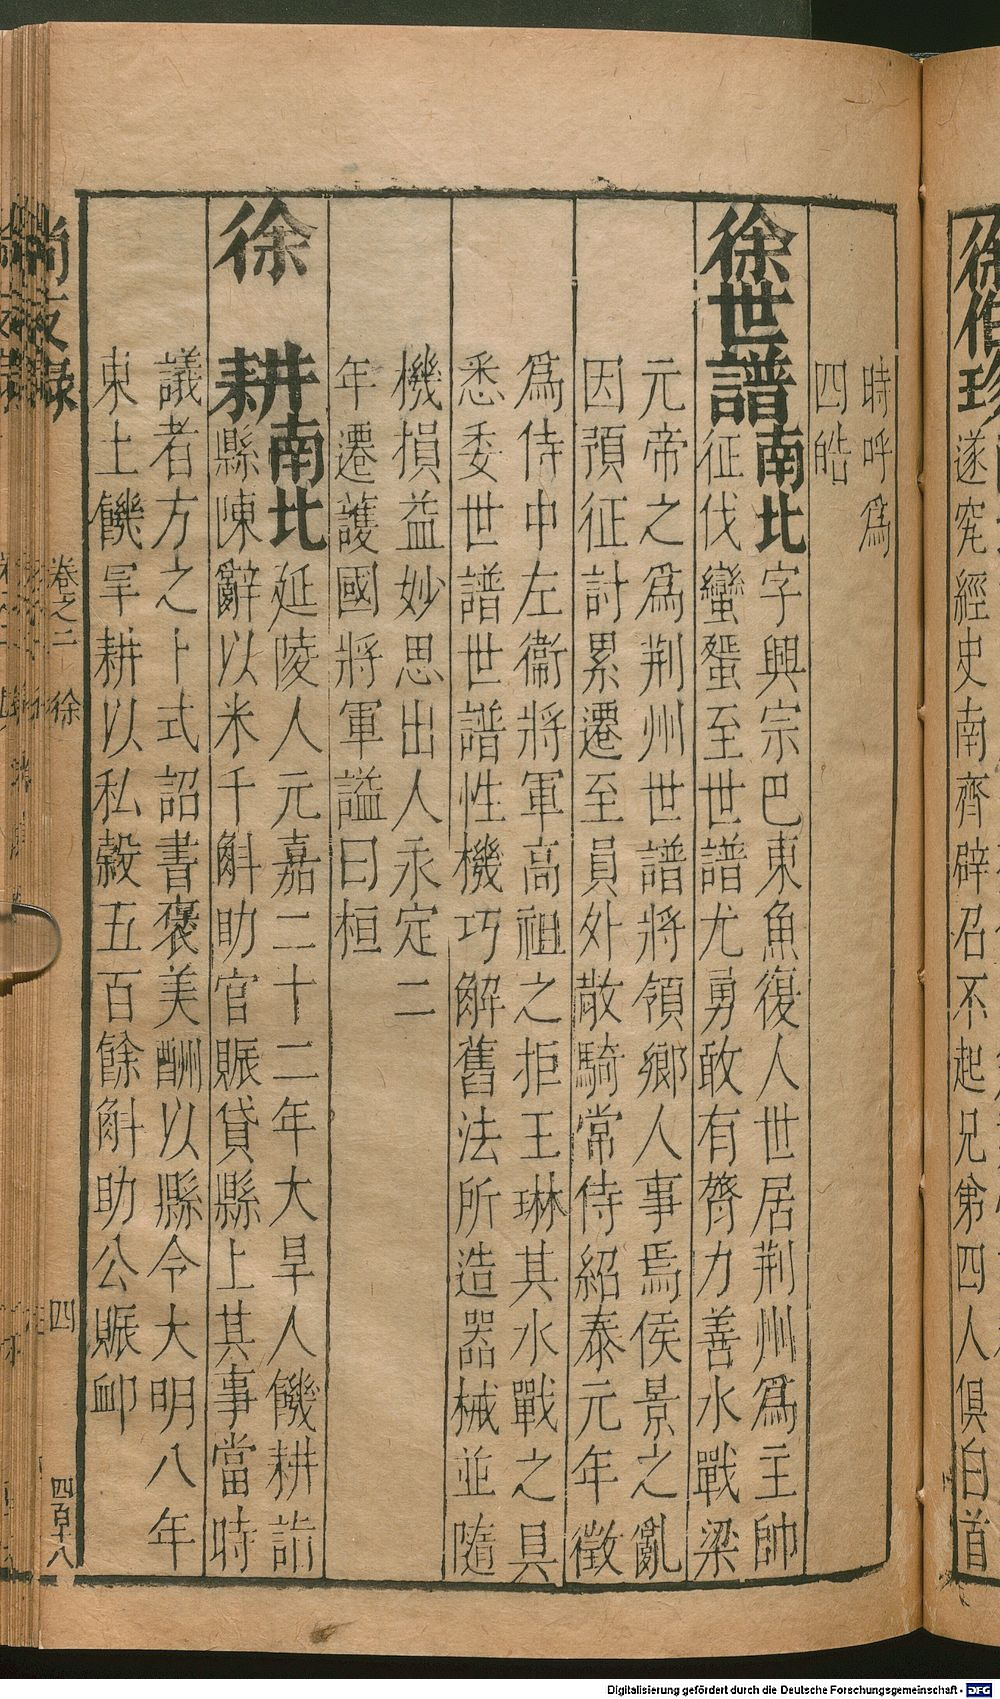 徐伯珍
遂究經史南齊辟召不起兄弟四人俱白首
時呼爲
四皓
徐世譜南北字興宗巴東魚復人世居荆州爲主帥
征伐蠻蜑至世譜尤勇敢有膂力善水戰梁
元帝之爲荆州世譜將領鄉人事焉侯景之亂
因預征討累遷至員外散騎常侍紹泰元年徵
爲侍中左衞將軍高祖之拒王琳其水戰之具
悉委世譜世譜性機巧解舊法所造器械並隨
機損益妙思出人永定二
年遷護國將軍謚曰桓
徐耕南北延陵人元嘉二十二年大旱人饑耕詣
縣陳辭以米千斛助官賑貸縣上其事當時
議者方之卜式詔書褒美酬以縣令大明八年
東土饑旱耕以私穀五百餘斛助公賑卹
尚友錄
卷之二 徐
四
四百十八
Digitalisierung gefördert durch die Deutsche Forschungsgemeinschaft - DFG